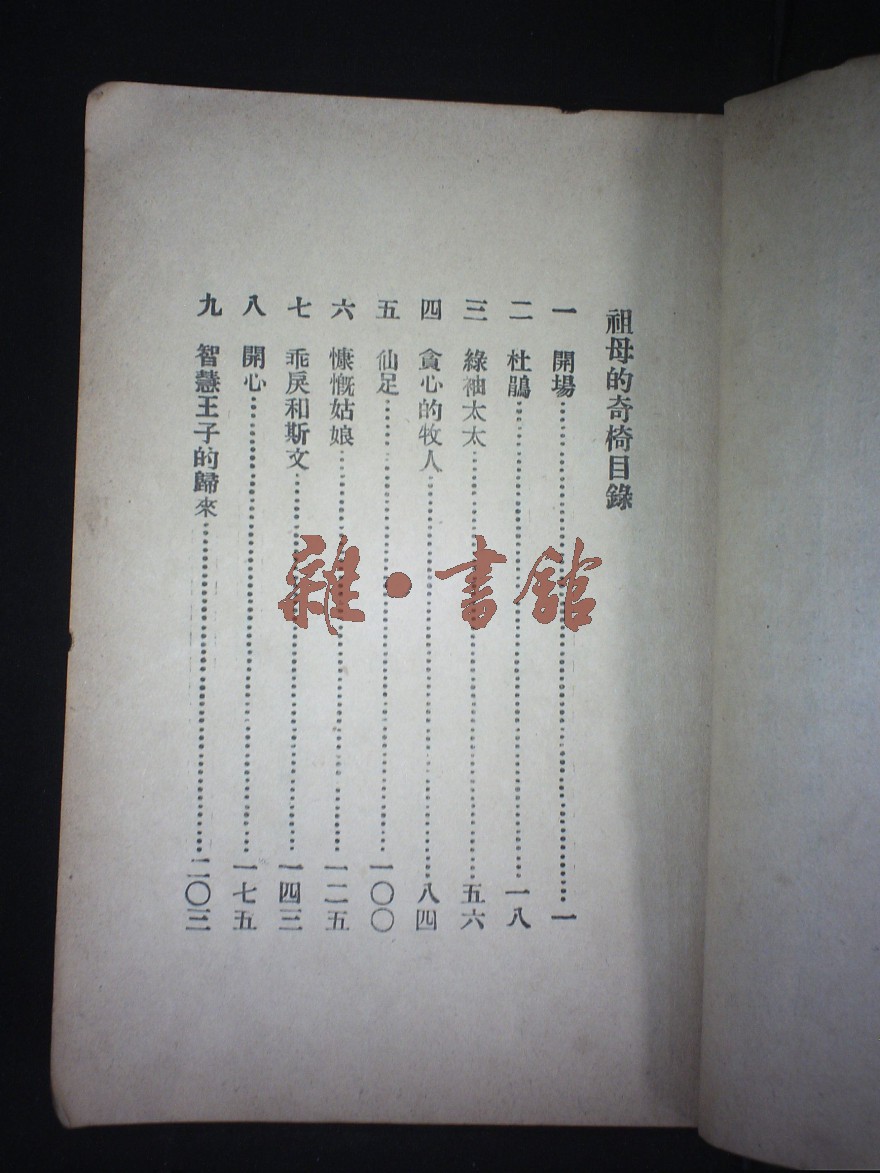 祖母的奇椅目錄
一 開場……一
二 杜鵑……一八
三 綠袖太太……五六
四 貪心的牧人……八四
五 仙足……一〇〇
六 慷慨姑娘……一二五
七 乖戾和斯文……一四三
八 開心……一七五
九 智慧王子的歸來……二〇三
雜·書館